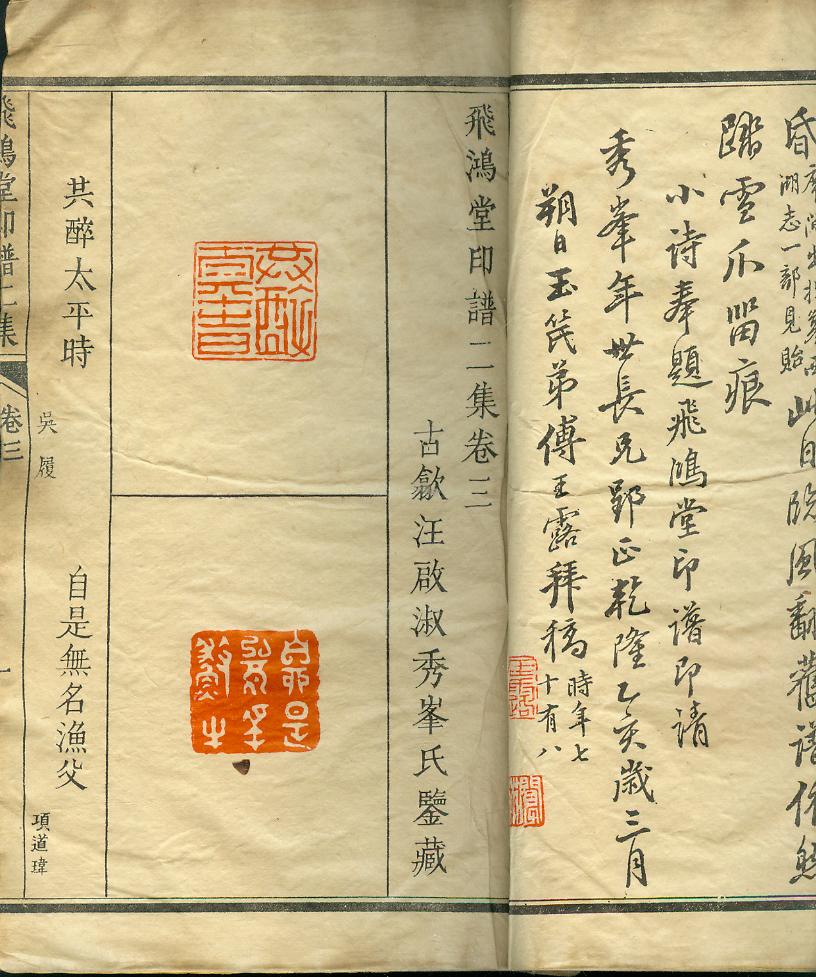 昏
湖志一部見貽
此日臨風翻舊譜依然
踏雪爪留痕
小詩奉題飛鴻堂印譜即請
秀峯年世長兄郢正乾隆乙亥歲三月
朔日玉笥弟傅王露拜稿時年七十有八
飛鴻堂印譜二集卷三
古歙汪啟淑秀峯氏鑒藏
共醉太平時
吳履
自是無名漁父
項道瑋
飛鴻堂印譜二集
卷三
一